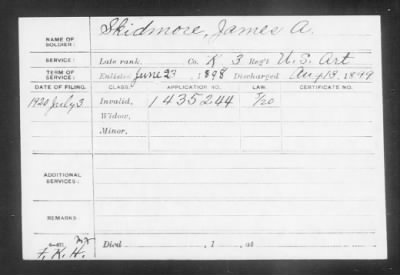 NAME OF SOLDIER: Skidmore, James A.
SERVICE: Late rank, Co. K 3 Reg't U.S. Art
TERM OF SERVICE: Enlisted June 23, 1898 Discharged Aug 18, 1899
DATE OF FILING. CLASS. APPLICATION NO. LAW. CERTIFICATE NO.
1920 July 3 Invalid, 1435244 5/20
Widow,
Minor,
ADDITIONAL SERVICES:
REMARKS
Died , 1 , at
F. K. H.